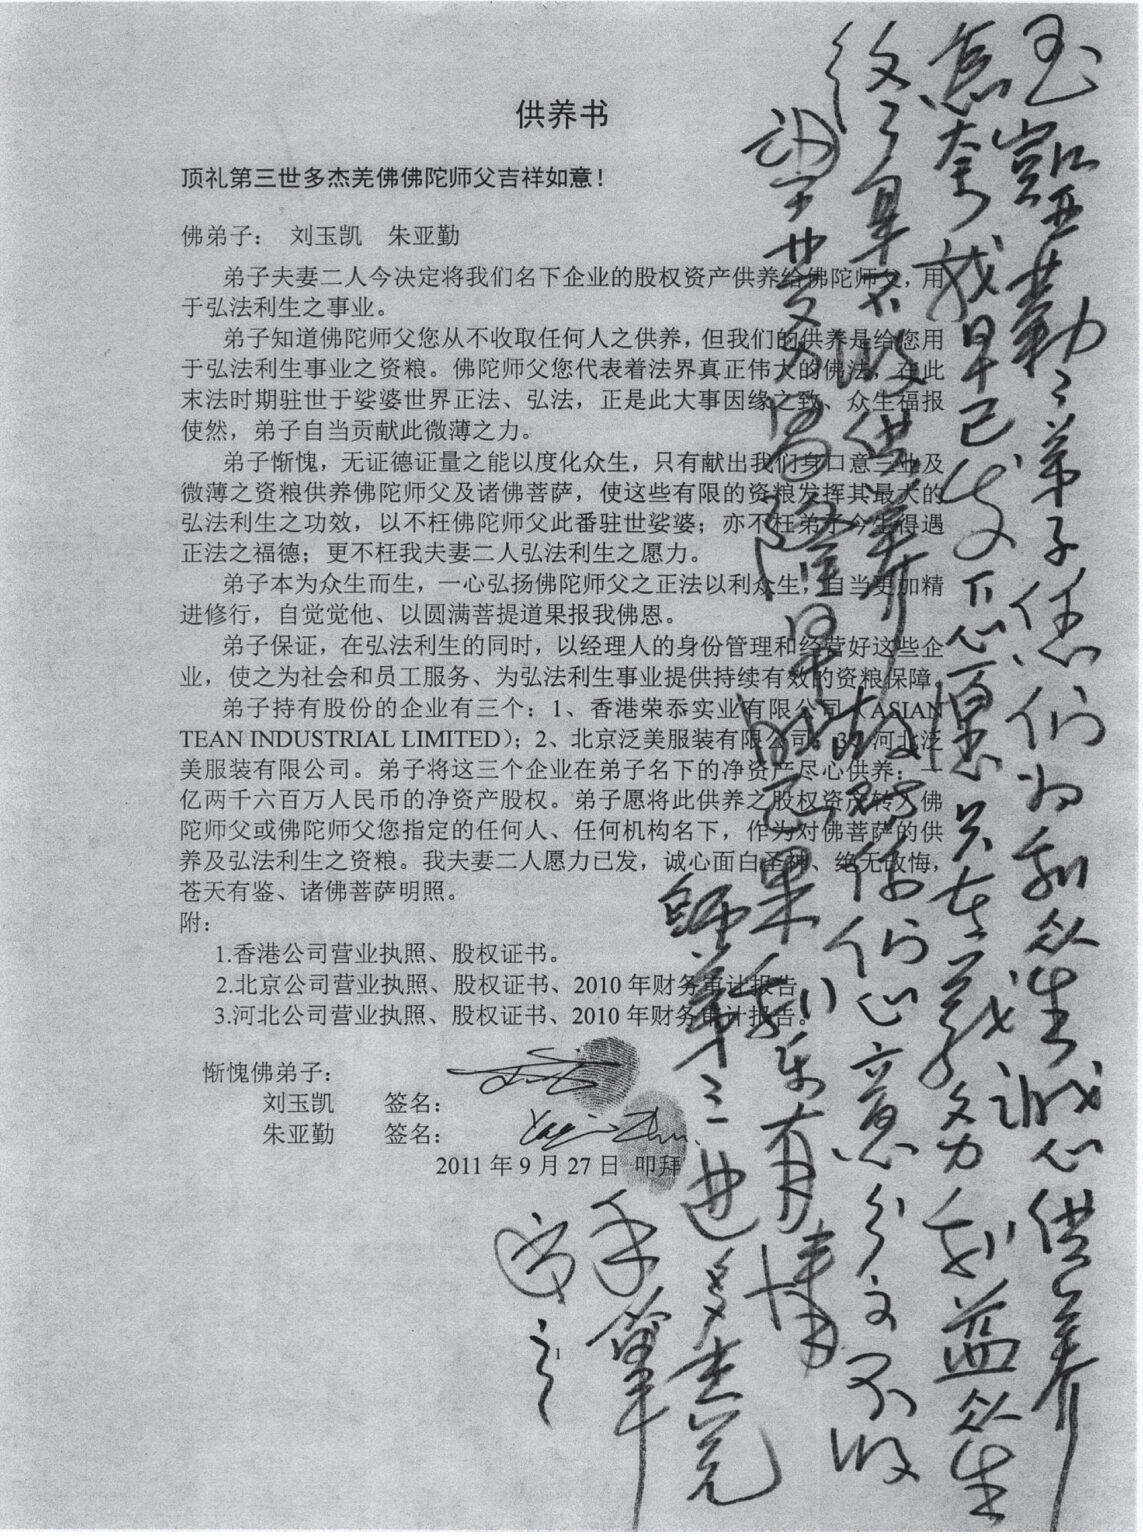 供养书
顶礼第三世多杰羌佛佛陀师父吉祥如意！
佛弟子： 刘玉凯 朱亚勤
弟子夫妻二人今决定将我们名下企业的股权资产供养给佛陀师父，用
于弘法利生之事业。
弟子知道佛陀师父您从不收取任何人之供养，但我们的供养是给您用
于弘法利生事业之资粮。佛陀师父您代表着法界真正伟大的佛法，在此
末法时期驻世于娑婆世界正法、弘法，正是此大事因缘之致、众生福报
使然，弟子自当贡献此微薄之力。
弟子惭愧，无证德证量之能以度化众生，只有献出我们身口意三业及
微薄之资粮供养佛陀师父及诸佛菩萨，使这些有限的资粮发挥其最大的
弘法利生之功效，以不枉佛陀师父此番驻世娑婆；亦不枉弟子今生得遇
正法之福德；更不枉我夫妻二人弘法利生之愿力。
弟子本为众生而生，一心弘扬佛陀师父之正法以利众生，自当更加精
进修行，自觉觉他、以圆满菩提道果报我佛恩。
弟子保证，在弘法利生的同时，以经理人的身份管理和经营好这些企
业，使之为社会和员工服务、为弘法利生事业提供持续有效的资粮保障
弟子持有股份的企业有三个：1、香港荣忝实业有限公司（ASIAN
TEAN INDUSTRIAL LIMITED）；2、北京泛美服装有限公司；3、河北泛
美服装有限公司。弟子将这三个企业在弟子名下的净资产尽心供养：一
亿两千六百万人民币的净资产股权。弟子愿将此供养之股权资产转入佛
陀师父或佛陀师父您指定的任何人、任何机构名下，作为对佛菩萨的供
养及弘法利生之资粮。我夫妻二人愿力已发，诚心面白圣神、绝无改悔，
苍天有鉴、诸佛菩萨明照。
附：
1.香港公司营业执照、股权证书。
2.北京公司营业执照、股权证书、2010 年财务审计报告
3.河北公司营业执照、股权证书、2010 年财务审计报告。
惭愧佛弟子：
刘玉凯 签名：
朱亚勤 签名： Yaqin Zhu
2011 年 9 月 27 日 叩拜
1
玉凯亚勤二弟子你们为利众生诚心供养
我早已发下心愿只在义务利益众生
不收供养故对你们心意分文不收
早证正果利乐有情
第三世多杰羌